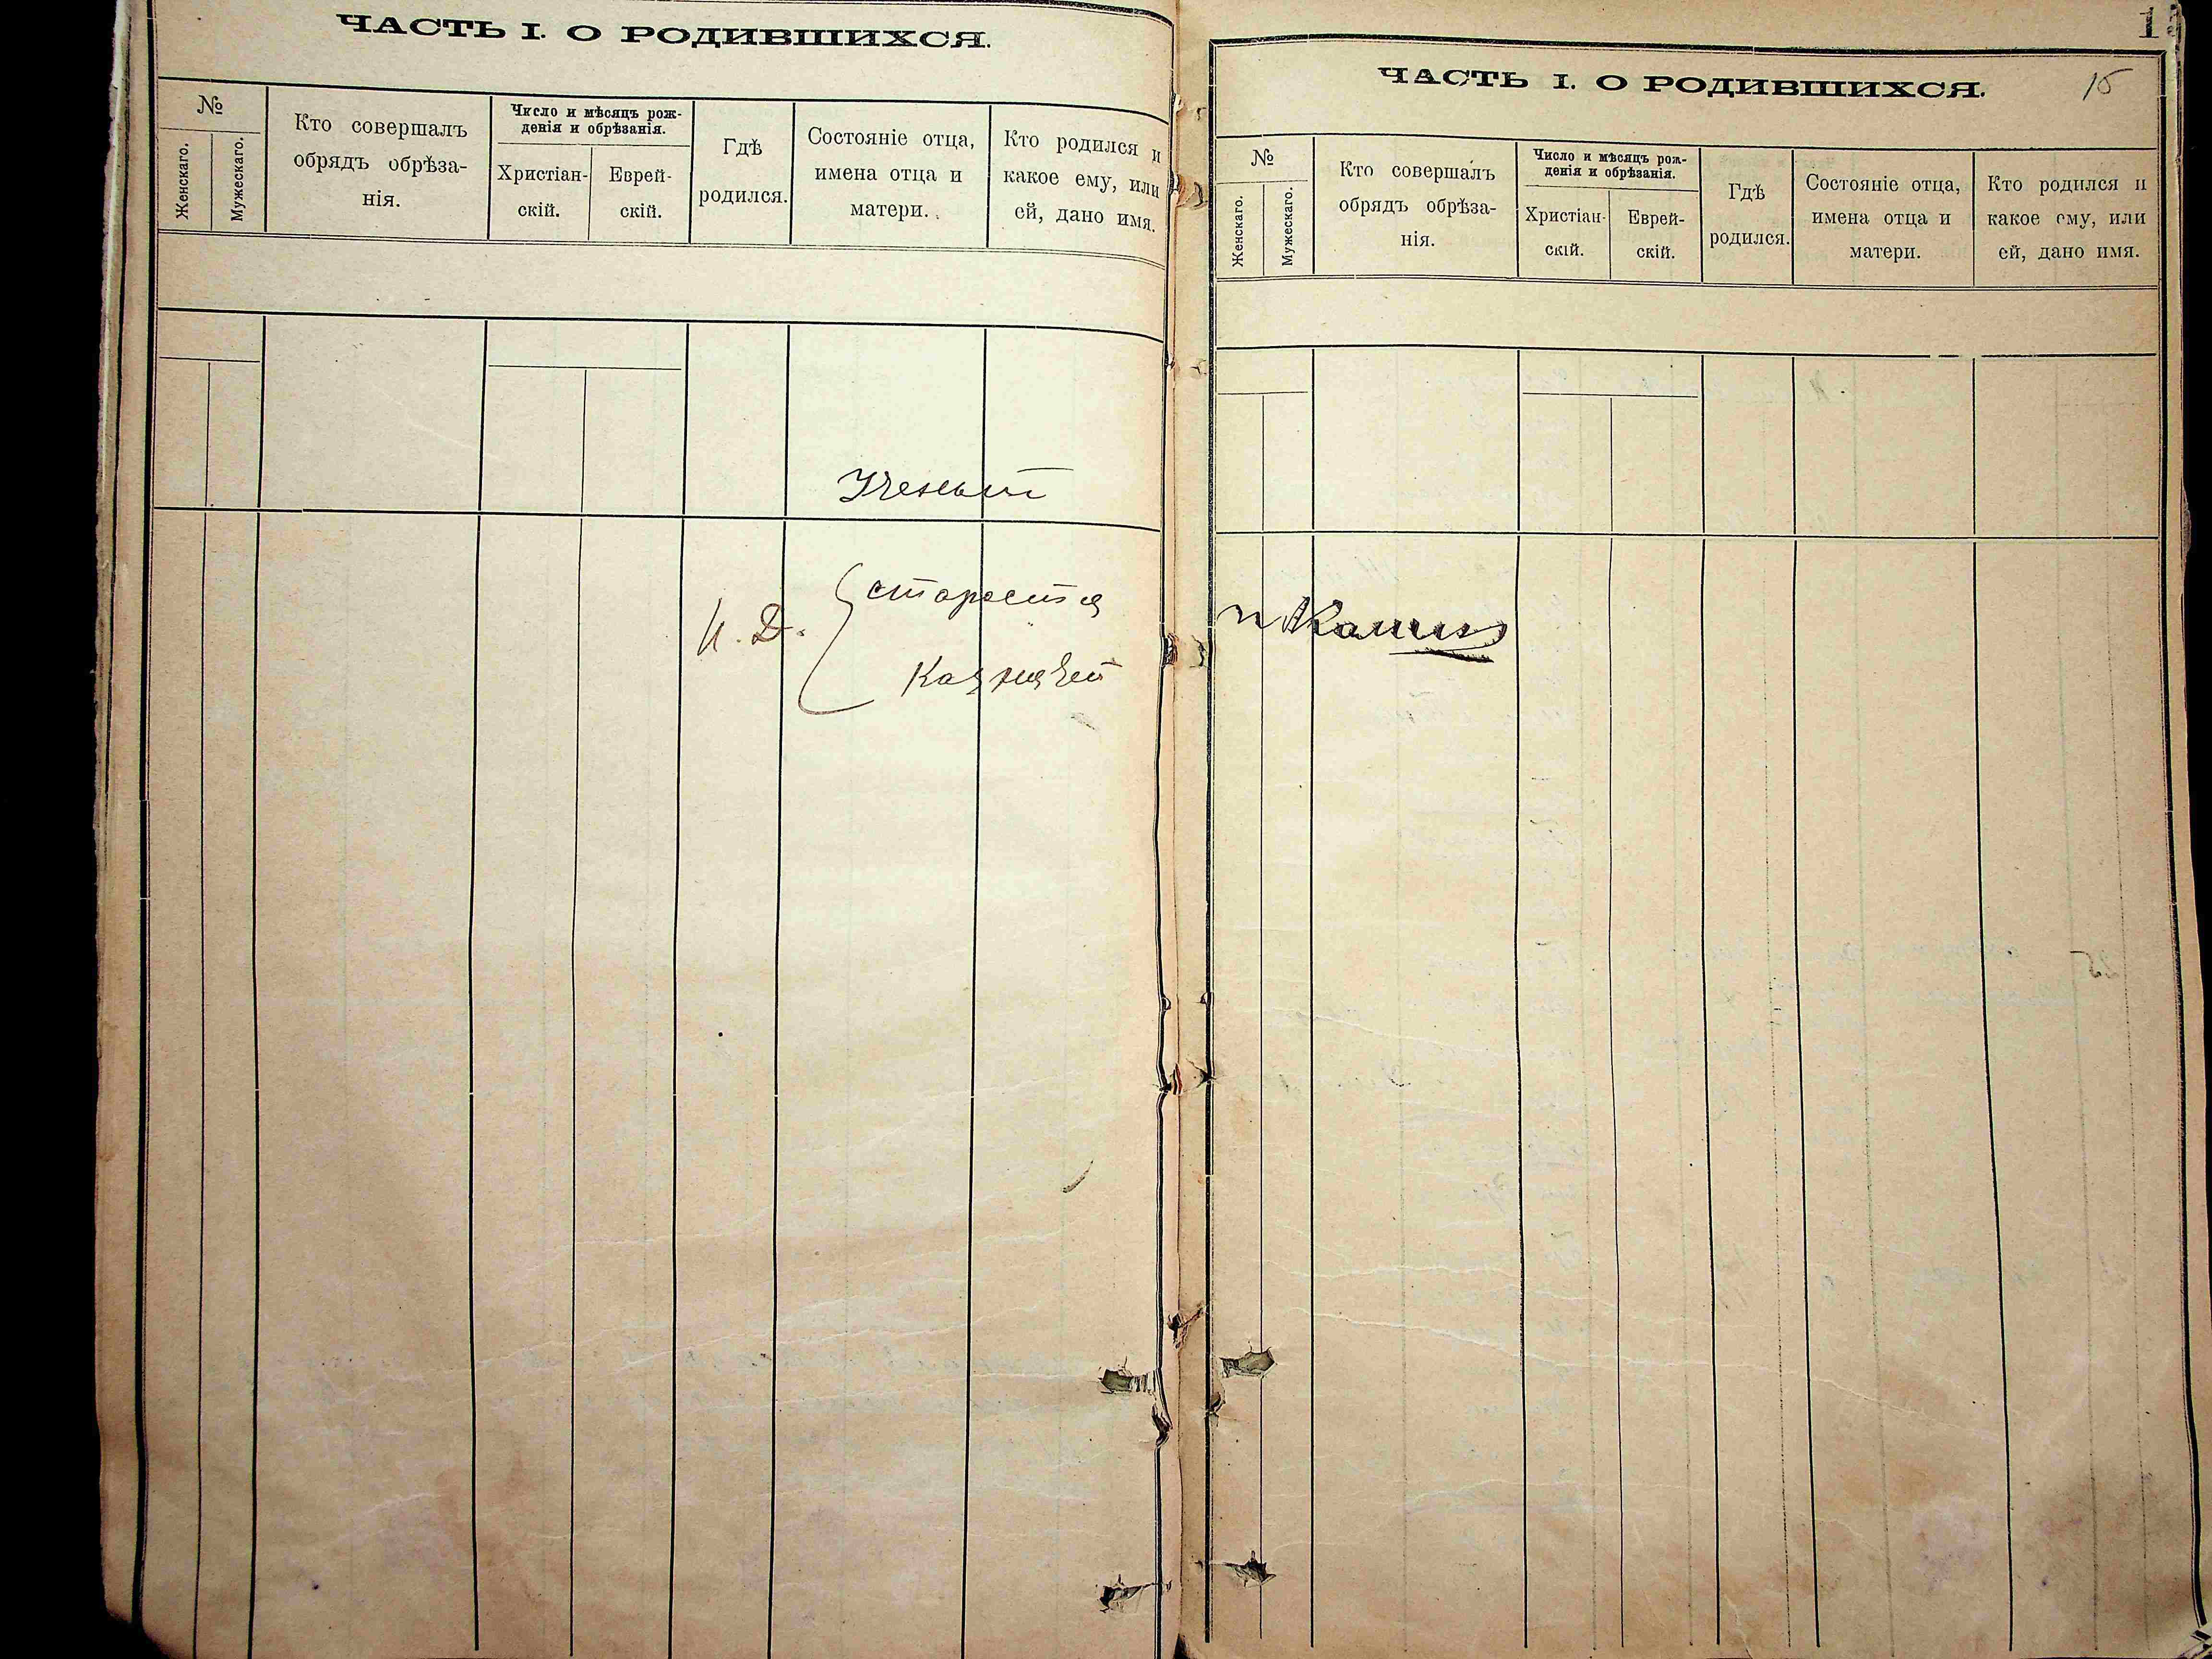 ЧАСТЬ I. О РОДИВШИХСЯ.
№
Женскаго.
Мужескаго.
Кто совершалъ
обрядъ обрѣза-
нія.
Число и мѣсяцъ рож-
денія и обрѣзанія.
Христіан-
скій.
Еврей-
скій.
Гдѣ
родился.
Состояніе отца,
имена отца и
матери.
Кто родился и
какое ему, или
ей, дано имя.
Ученый
И. Д.
староста
Казначей
15
ЧАСТЬ I. О РОДИВШИХСЯ.
№
Женскаго.
Мужескаго.
Кто совершалъ
обрядъ обрѣза-
нія.
Число и мѣсяцъ рож-
денія и обрѣзанія.
Христіан-
скій.
Еврей-
скій.
Гдѣ
родился.
Состояніе отца,
имена отца и
матери.
Кто родился и
какое ему, или
ей, дано имя.